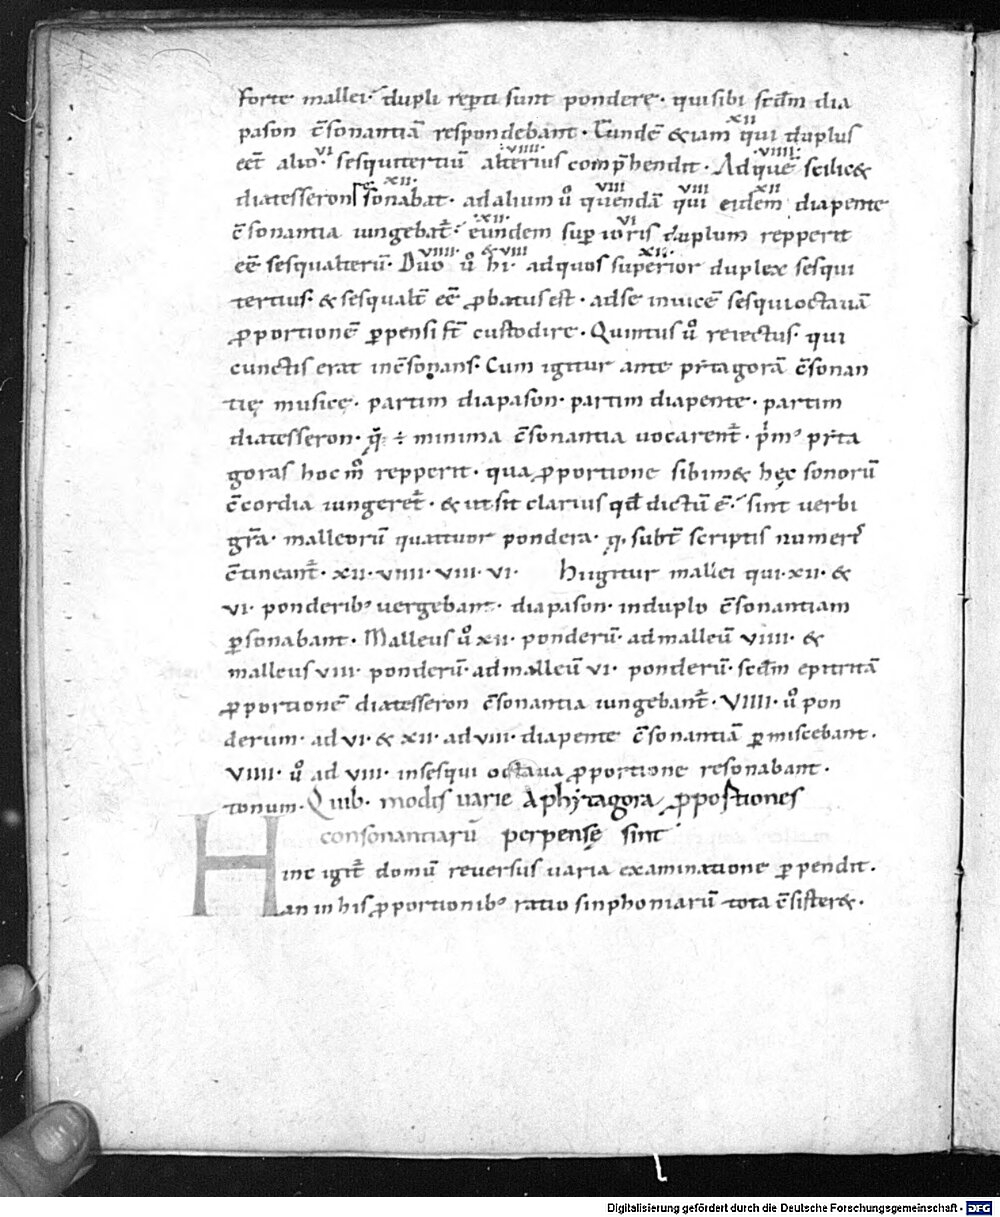 forte mallei dupli reperti sunt pondere· qui sibi scdm dia
pason c̄sonantiā respondebant· Eundē &iam qui duplus
XII
eet̄ alio· sesquitertiū alterius comp̄hendit· Ad quē scilic&
VI VIIII VIIII
diatesseron c̄sonabat· ad alium ů quendā qui eidem diapente
XII VIII VIII XII
c̄sonantia iungebat̄· eundem superioris duplum repperit
XII VI
eē sesqualterū· Duo ů hi· ad quos superior duplex sesqui
VIIII & VIII XII
tertius· & sesqualt̄ eē ꝓbatus est· ad se inuicē sesquioctauā
ꝓportionē ꝑpensi st̄ custodire· Quintus ů reiectus· qui
cunctis erat inc̄sonans· Cum igitur ante pitagorā c̄sonan
tię musicę· partim diapason· partim diapente· partim
diatesseron· q̄ ÷ minima c̄sonantia uocarent̄· pimˀ pita
goras hoc m̊ repperit· qua ꝓportione sibim& hęc sonorū
c̄cordia iungeret̄· & ut sit clarius qđ dictū ē· sint uerbi
gr̄a· malleorū quattuor pondera· q· subt̄ scriptis numeris
c̄tineant̄· XII· VIIII· VIII· VI· Hi igitur mallei qui· XII· &
VI· ponderibˀ uergebant· diapason· in duplo c̄sonantiam
ꝑsonabant· Malleus ů XII· ponderū· ad malleū VIIII· &
malleus VIII· ponderū· ad malleū VI· ponderū· scdm epitritā
ꝓportionē diatesseron c̄sonantia iungebant̄· VIIII· ů pon
derum· ad VI· & XII· ad VIII· diapente c̄sonantiā ꝑmiscebant·
VIIII· ů ad VIII· in sesqui octaua ꝓportione resonabant·
tonum· Quib· modis uarie a phytagora ꝓpostiones
consonantiarū perpensę sint
Hinc igit̄ domū reuersus uaria examinatione ꝑpendit·
an in his ꝓportionibˀ ratio sinphoniarū tota c̄sister&·
Digitalisierung gefördert durch die Deutsche Forschungsgemeinschaft - DFG